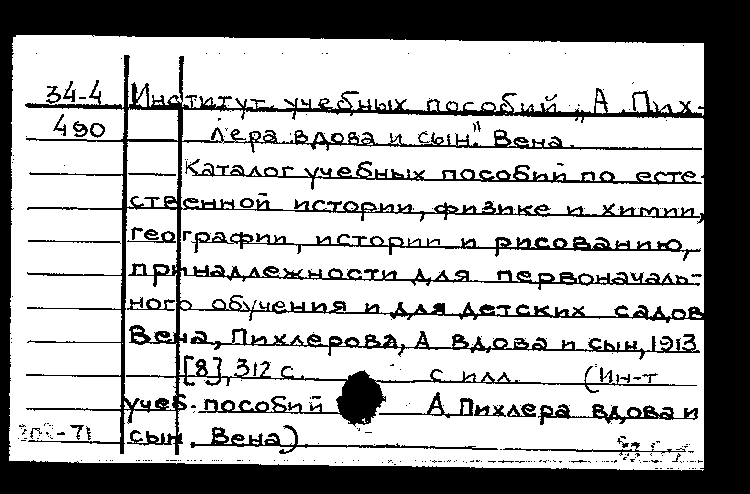 34-4 Институт учебных пособий „А. Пих-
490 лера вдова и сын." Вена.
Каталог учебных пособий по есте-
ственной истории, физике и химии,
географии, истории и рисованию,
принадлежности для первоначаль-
ного обучения и для детских садов
Вена, Пихлерова, А вдова и сын, 1913
[8], 312 с. с илл. (Ин-т
учеб. пособий А. Пихлера вдова и
сын, Вена)